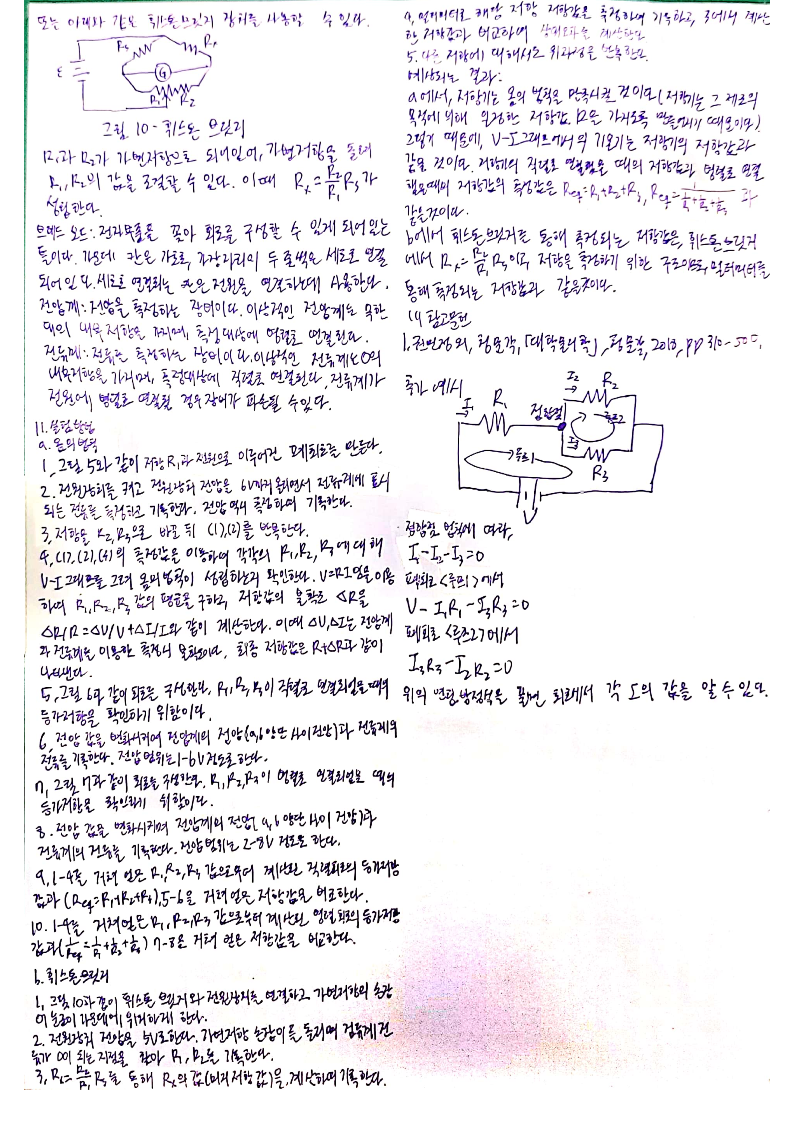 또는 아래와 같은 휘스톤브릿지 장치를 사용할 수 있다.
ε
R₃
Rₓ
G
R₁
R₂
그림 10 - 휘스톤 브릿지
R₁과 R₂가 가변저항으로 되어있어, 가변저항을 돌려
R₁, R₂의 값을 조절할 수 있다. 이때 Rₓ = R₂/R₁ R₃가
성립한다.
브레드 보드: 전자부품을 꽂아 회로를 구성할 수 있게 되어있는
틀이다. 가운데 칸은 가로로, 가장자리의 두 줄씩은 세로로 연결
되어 있다. 세로로 연결되는 칸은 전원을 연결하는데 사용한다.
전압계: 전압을 측정하는 장비이다. 이상적인 전압계는 무한
대의 내부저항을 가지며, 측정대상에 병렬로 연결된다.
전류계: 전류를 측정하는 장비이다. 이상적인 전류계는 0의
내부저항을 가지며, 측정대상에 직렬로 연결된다. 전류계가
전원에 병렬로 연결될 경우 장비가 파손될 수 있다.
11. 실험방법
a. 옴의 법칙
1. 그림 5와 같이 저항 R₁과 전원으로 이루어진 폐회로를 만든다.
2. 전원장치를 켜고 전원장치 전압을 6V까지 올리면서 전류계에 표시
되는 전류를 측정하고 기록한다. 전압 역시 측정하여 기록한다.
3. 저항을 R₂, R₃으로 바꾼 뒤 (1), (2)를 반복한다.
4. (1), (2), (3)의 측정값을 이용하여 각각의 R₁, R₂, R₃에 대해
V-I 그래프를 그려 옴의 법칙이 성립하는지 확인한다. V=RI임을 이용
하여 R₁, R₂, R₃ 값의 평균을 구하고, 저항값의 불확도 ΔR을
ΔR/R = ΔV/V + ΔI/I와 같이 계산한다. 이때 ΔV, ΔI는 전압계
과 전류계를 이용한 측정시 불확도이다. 최종 저항값은 R±ΔR과 같이
나타낸다.
5. 그림 6과 같이 회로를 구성한다. R₁, R₂, R₃이 직렬로 연결되었을 때의
등가저항을 확인하기 위함이다.
6. 전압 값을 변화시키며 전압계의 전압(a, b 양단 사이 전압)과 전류계의
전류를 기록한다. 전압 범위는 1-6V 정도로 한다.
7. 그림 7과 같이 회로를 구성한다. R₁, R₂, R₃이 병렬로 연결되었을 때의
등가저항을 확인하기 위함이다.
8. 전압 값을 변화시키며 전압계의 전압(a, b 양단 사이 전압)과
전류계의 전류를 기록한다. 전압범위는 2-8V 정도로 한다.
9. 1-4를 거쳐 얻은 R₁, R₂, R₃ 값으로부터 계산된 직렬회로의 등가저항
값과 (Req=R₁+R₂+R₃), 5-6을 거쳐 얻은 저항값을 비교한다.
10. 1-4를 거쳐 얻은 R₁, R₂, R₃ 값으로부터 계산된 병렬회로의 등가저항
값과 (1/Req = 1/R₁ + 1/R₂ + 1/R₃) 7-8을 거쳐 얻은 저항값을 비교한다.
b. 휘스톤브릿지
1. 그림 10과 같이 휘스톤 브릿지와 전원장치를 연결하고, 가변저항의 손잡
이 눈금이 가운데에 위치하게 한다.
2. 전원장치 전압을 5V로 한다. 가변저항 손잡이를 돌리며 검류계 전
류가 0이 되는 지점을 찾아 R₁, R₂를 기록한다.
3. Rₓ = R₂/R₁ R₃를 통해 Rₓ의 값(미지저항 값)을 계산하여 기록한다.
4. 멀티미터로 해당 저항 저항값을 측정하여 기록하고, 3에서 계산
한 저항값과 비교하여 상대오차를 계산한다.
5. 다른 저항에 대해서도 위 과정을 반복한다.
예상되는 결과:
a에서, 저항기는 옴의 법칙을 만족시킬 것이다(저항기는 그 제조의
목적에 의해 일정한 저항값 R을 가지도록 만들어지기 때문이다.)
그렇기 때문에, V-I 그래프에서의 기울기는 저항기의 저항값과
같을 것이다. 저항기의 직렬로 연결됐을 때의 저항값과 병렬로 연결
됐을때의 저항값의 측정값은 Req=R₁+R₂+R₃, Req = 1/(1/R₁+1/R₂+1/R₃) 과
같을것이다.
b에서 휘스톤브릿지를 통해 측정되는 저항값은, 휘스톤브릿지
에서 Rₓ = R₂/R₁ R₃이고, 저항을 측정하기 위한 구조이므로, 멀티미터를
통해 측정되는 저항값과 같을것이다.
14 참고문헌
1. 외, 청문각, 「대학물리학」, 청문각, 2018, pp 310-
추가 예시
I₁
R₁
접합점
I₂
R₂
루프2
I₃
R₃
루프1
V
접합점 법칙에 따라,
I₁-I₂-I₃=0
폐회로 <루프1>에서
V - I₁R₁ - I₃R₃=0
폐회로 <루프2>에서
I₃R₃ - I₂R₂=0
위의 연립방정식을 풀면 회로에서 각 I의 값을 알 수 있다.